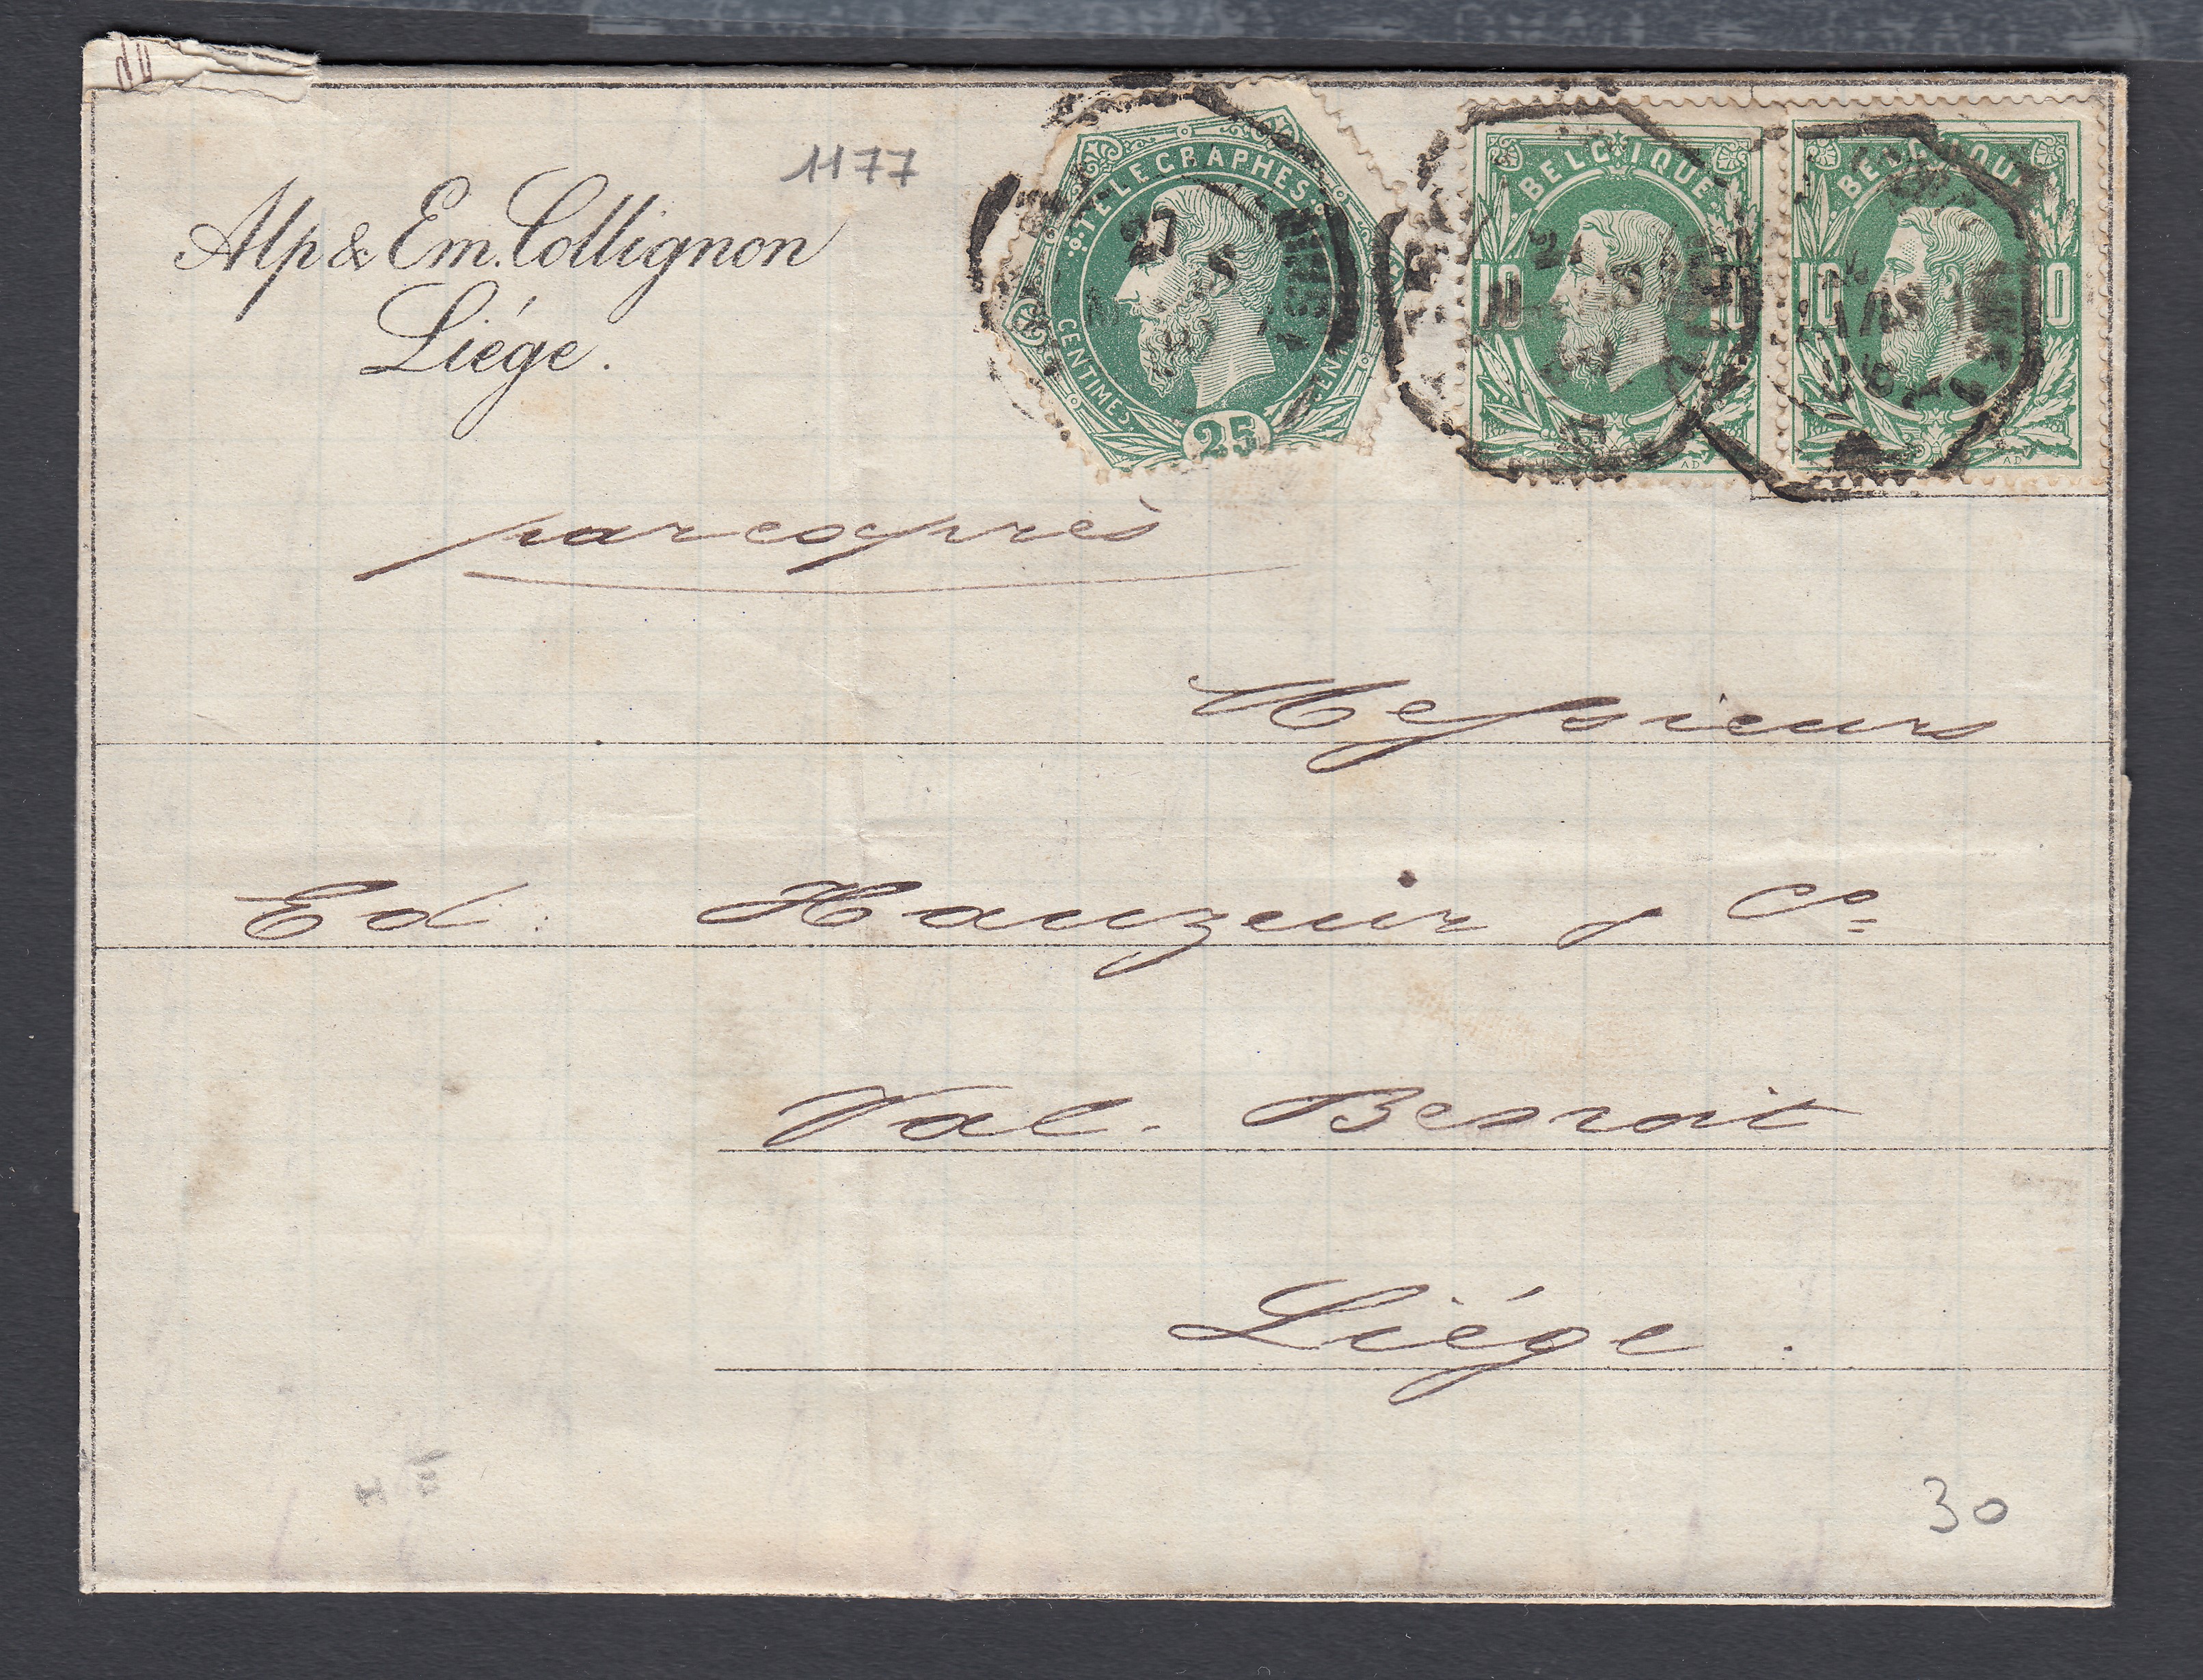 1177
Alp & Em. Collignon
Liége.
TÉLÉGRAPHES
27
CENTIMES
25
BELGIQUE
10
AD
BELGIQUE
10 10
AD
par exprès
Messieurs
Ed: Hauzeur & Cie
Val. Benoit
Liége.
30